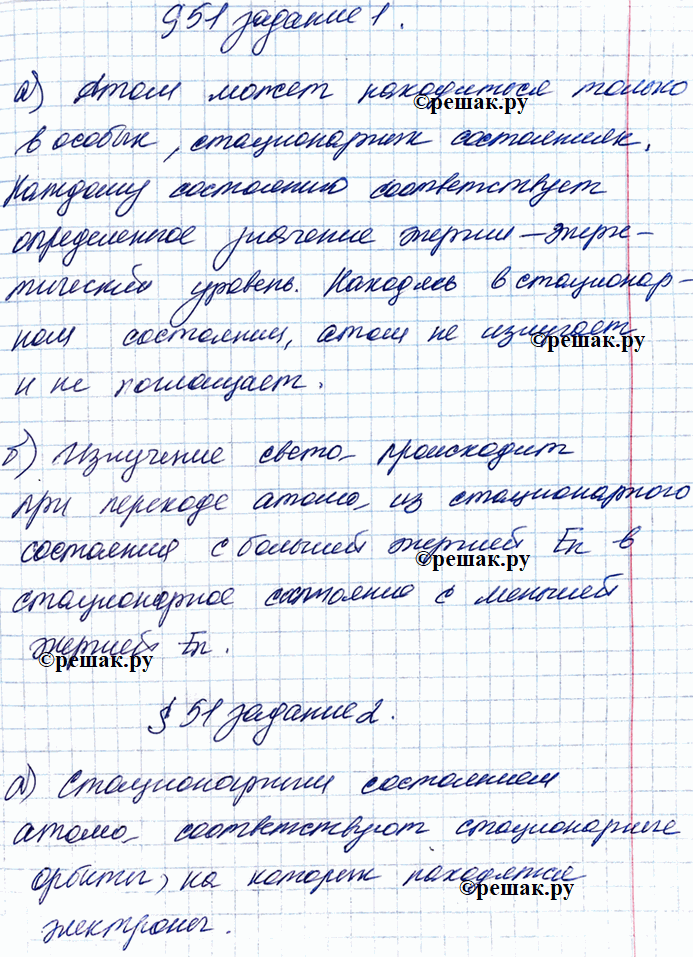 §51 задание 1.
а) Атом может находиться только
©решак.ру
в особых, стационарных состояниях.
Каждому состоянию соответствует
определенное значение энергии – энерге-
тический уровень. Находясь в стационар-
ном состоянии, атом не излучает
©решак.ру
и не поглощает.
б) Излучение света происходит
при переходе атома из стационарного
состояния с большей энергией Еn в
©решак.ру
стационарное состояние с меньшей
энергией Еn.
©решак.ру
§51 задание 2.
а) Стационарным состояниям
атома соответствуют стационарные
орбиты, на которых находятся
©решак.ру
электроны.